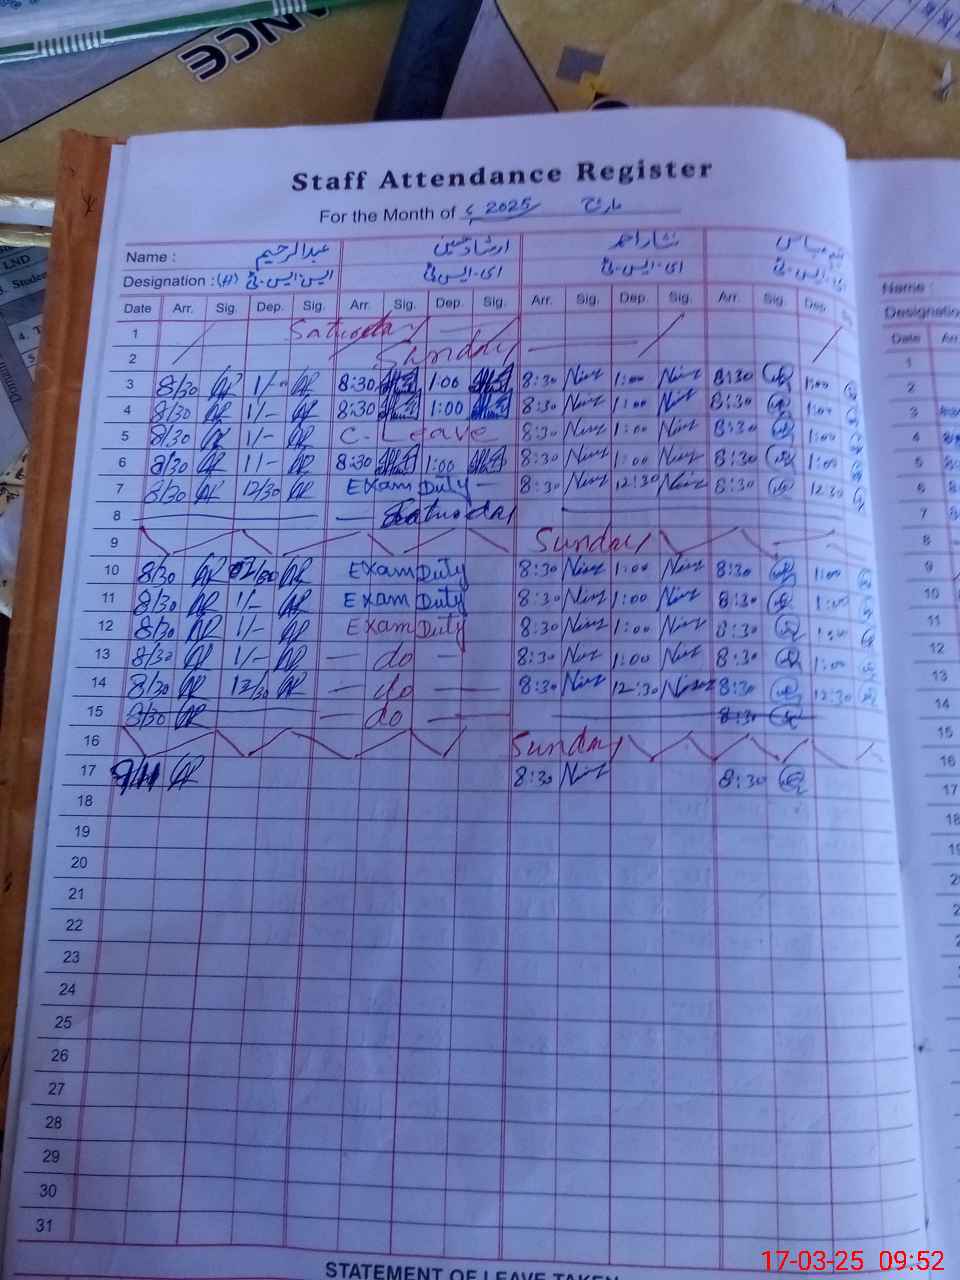 NCE
Staff Attendance Register
For the Month of 2025 مارچ
Name : عبدالرحیم ارشاد حسین نثار احمد عباس
Designation : (H) ایس-ایس-ٹی ای-ایس-ٹی ای-ایس-ٹی ای-ایس-ٹی
Date Arr. Sig. Dep. Sig. Arr. Sig. Dep. Sig. Arr. Sig. Dep. Sig. Arr. Sig. Dep.
1 Saturday
2 Sunday
3 8/30 1/- 8:30 1:00 8:30 1:00 8:30 1:00
4 8/30 1/- 8:30 1:00 8:30 1:00 8:30 1:00
5 8/30 1/- C. Leave 8:30 1:00 8:30 1:00
6 8/30 1/- 8:30 1:00 8:30 1:00 8:30 1:00
7 8/30 12/30 Exam Duty 8:30 12:30 8:30 12:30
8 Saturday
9 Sunday
10 8/30 Exam Duty 8:30 1:00 8:30 1:00
11 8/30 1/- Exam Duty 8:30 1:00 8:30 1:00
12 8/30 1/- Exam Duty 8:30 1:00 8:30 1:00
13 8/30 1/- — do — 8:30 1:00 8:30 1:00
14 8/30 12/30 — do — 8:30 12:30 8:30 12:30
15 8/30 — do — 8:30
16 Sunday
17 8:30 8:30
18
19
20
21
22
23
24
25
26
27
28
29
30
31
STATEMENT OF LEAVE TAKEN
Name :
Date
1
2
3
4
5
6
7
8
9
10
11
12
13
14
15
16
17
18
LND
17-03-25 09:52